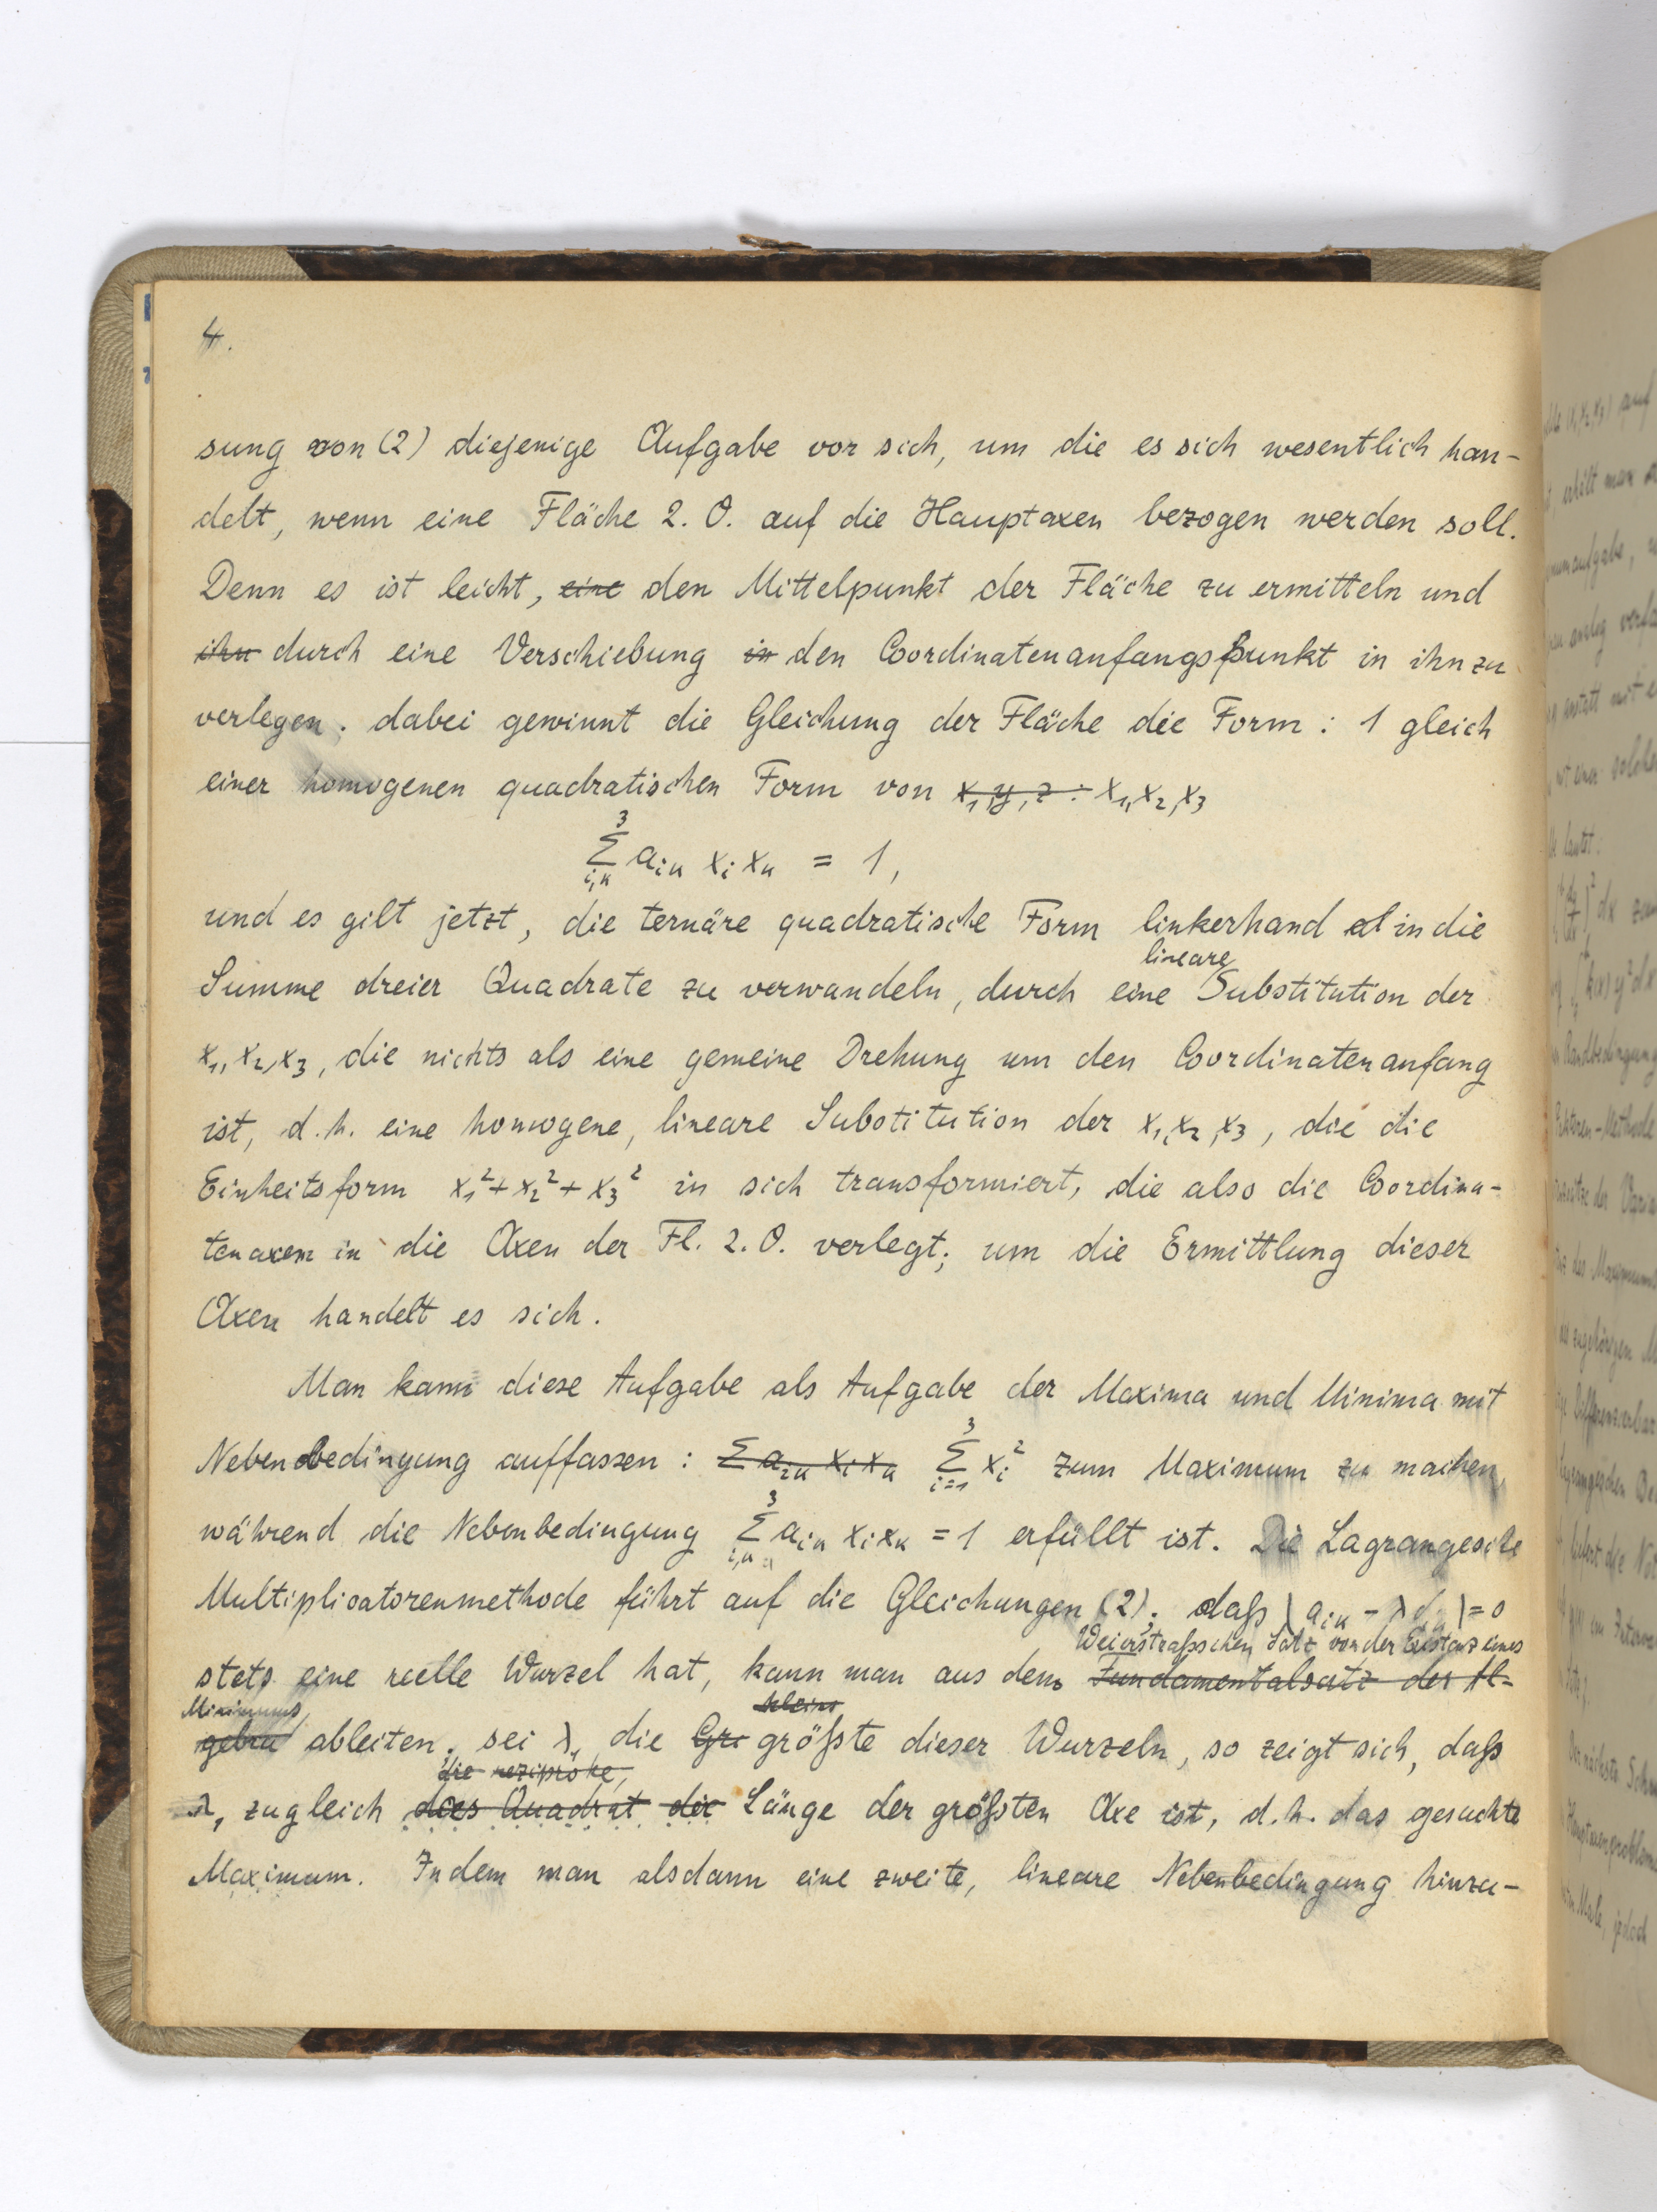 4.
sung von (2) diejenige Aufgabe vor sich, um die es sich wesentlich han-
delt, wenn eine Fläche 2. O. auf die Hauptaxen bezogen werden soll.
Denn es ist leicht, eine den Mittelpunkt der Fläche zu ermitteln und
ihn durch eine Verschiebung in den Coordinatenanfangspunkt in ihn zu
verlegen; dabei gewinnt die Gleichung der Fläche die Form: 1 gleich
einer homogenen quadratischen Form von x, y, z : x₁, x₂, x₃
3
Σ aᵢₖ xᵢ xₖ = 1,
i,k
und es gilt jetzt, die ternäre quadratische Form linkerhand in die
lineare
Summe dreier Quadrate zu verwandeln, durch eine Substitution der
x₁, x₂, x₃, die nichts als eine gemeine Drehung um den Coordinatenanfang
ist, d. h. eine homogene, lineare Substitution der x₁, x₂, x₃, die die
Einheitsform x₁² + x₂² + x₃² in sich transformiert, die also die Coordina-
tenaxen in die Axen der Fl. 2. O. verlegt; um die Ermittlung dieser
Axen handelt es sich.
Man kann diese Aufgabe als Aufgabe der Maxima und Minima mit
3
Nebenbedingung auffassen: Σ aᵢₖ xᵢ xₖ Σ xᵢ² zum Maximum zu machen,
i=1
3
während die Nebenbedingung Σ aᵢₖ xᵢ xₖ = 1 erfüllt ist. Die Lagrangesche
i,k=1
Multiplicatorenmethode führt auf die Gleichungen (2). daß | aᵢₖ - λ | = 0
Weierstraßschen Satz von der Existenz eines
stets eine reelle Wurzel hat, kann man aus dem Fundamentalsatz der Al-
Minimums, kleins
gebra ableiten; sei λ₁ die Gr größte dieser Wurzeln, so zeigt sich, daß
die reziproke,
λ₁ zugleich das Quadrat der Länge der größten Axe ist, d. h. das gesuchte
Maximum. Indem man alsdann eine zweite, lineare Nebenbedingung hinzu-